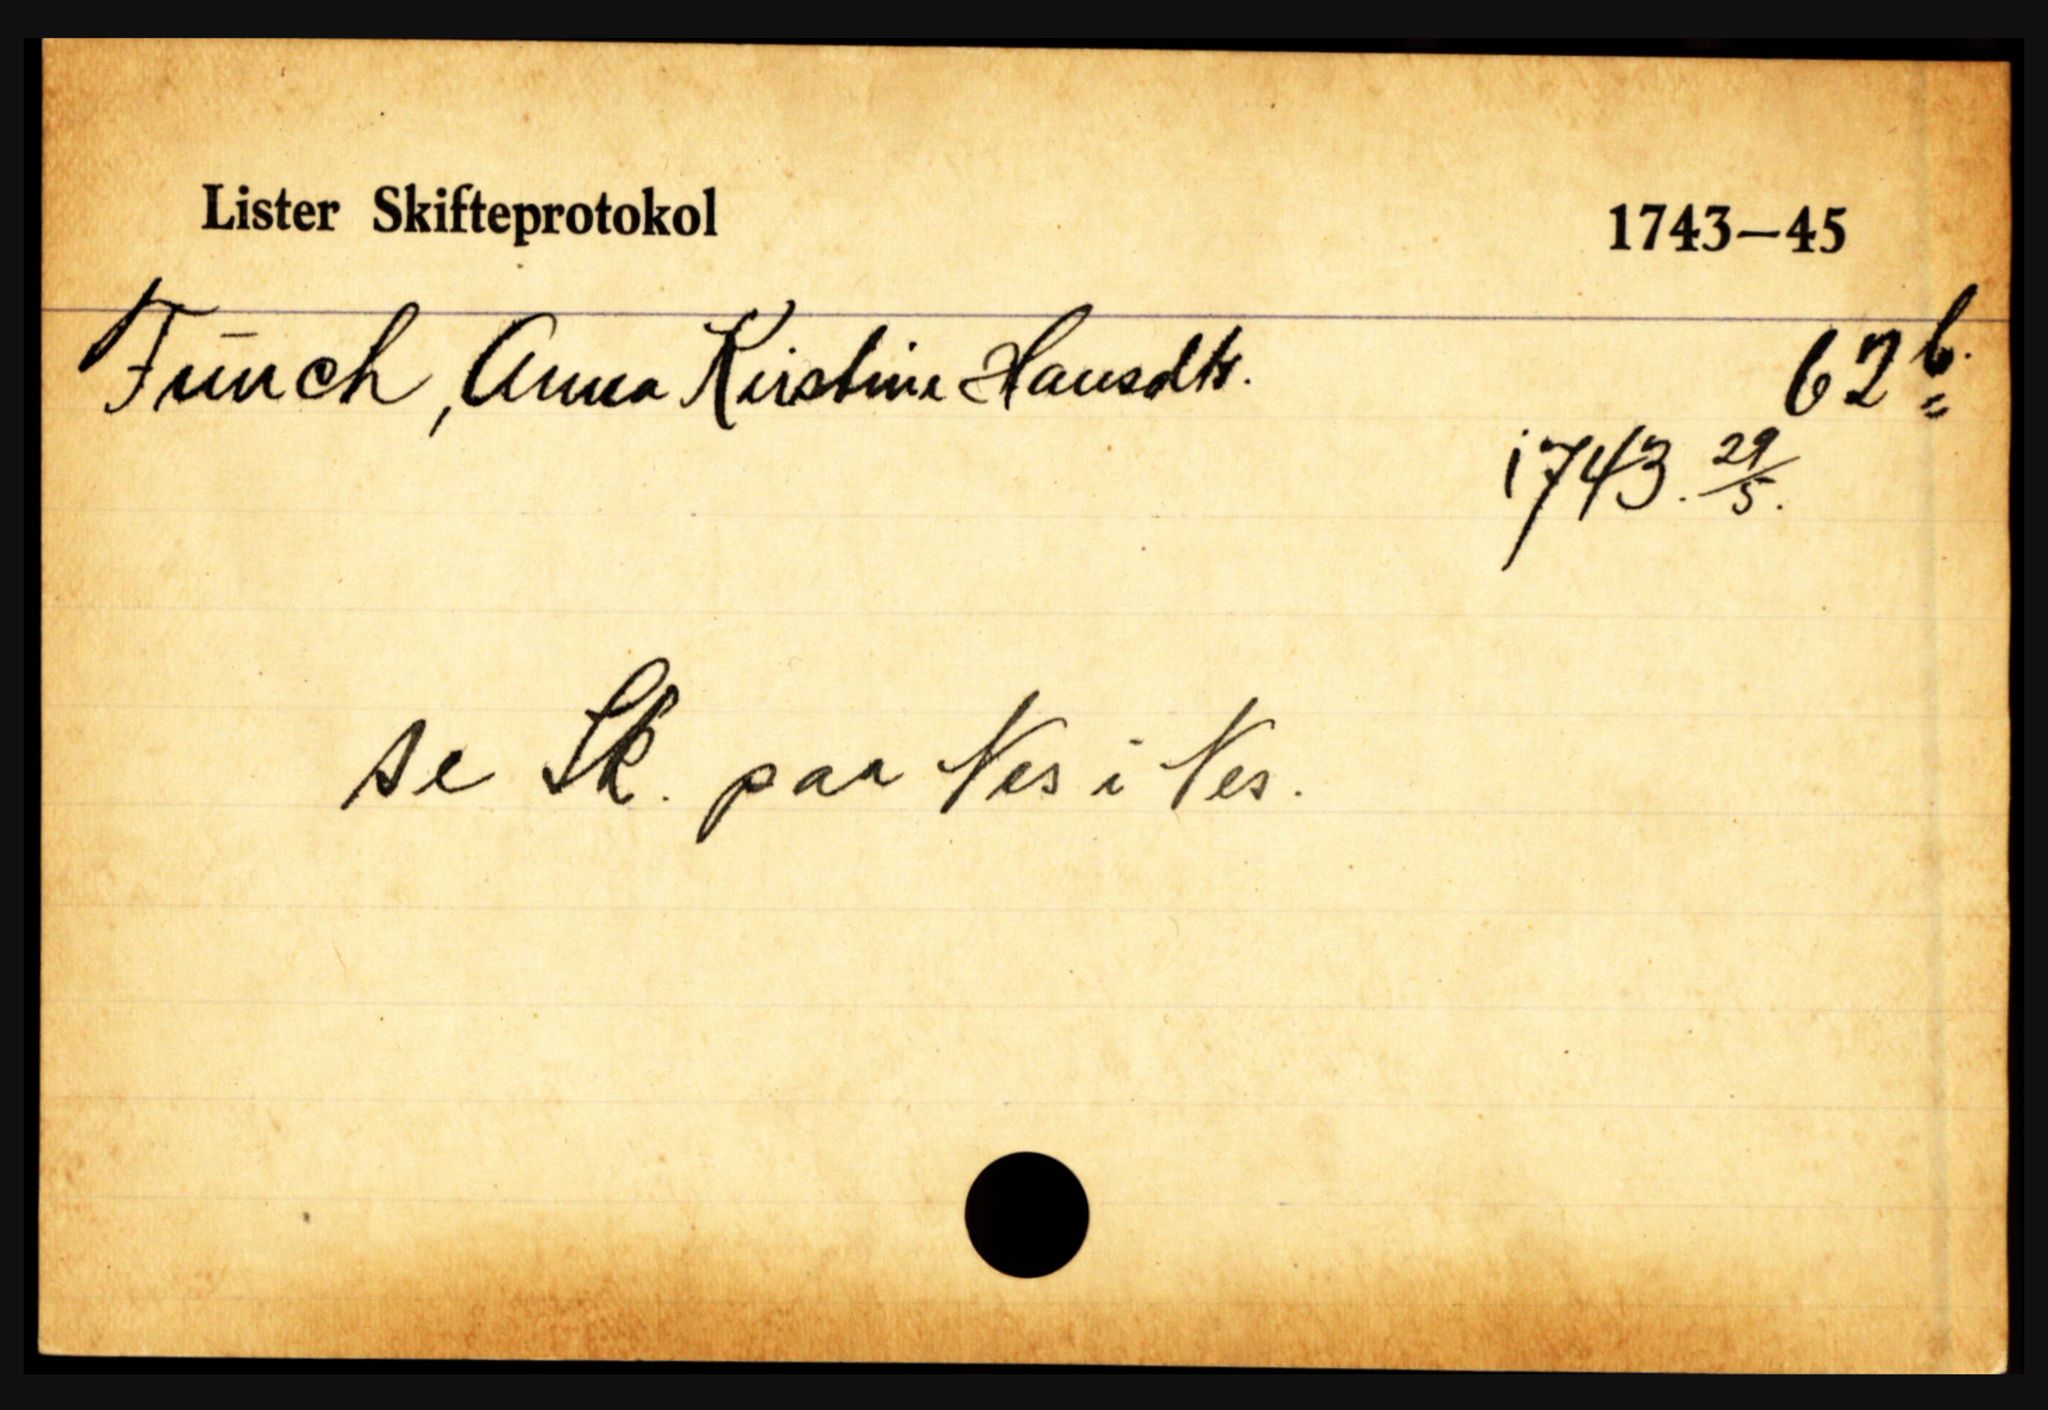 Lister Skifteprotokol 1743—45
Funch, Anna Kirstine Hansdtr. 62b.
1743. 29/5.
se Sk. paa Nes i Nes.